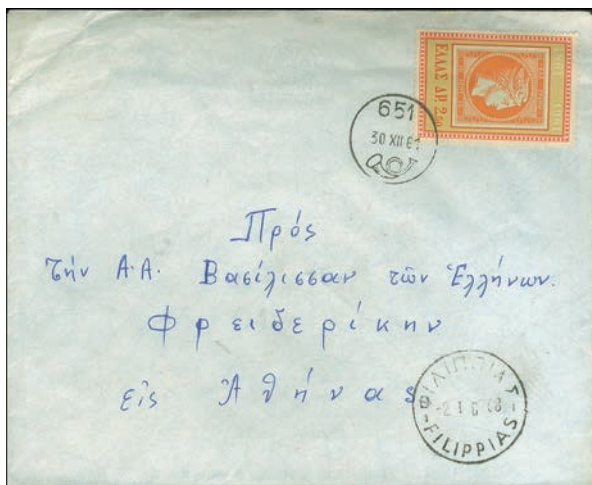 ΕΛΛΑΣ ΔΡ. 2.50
651
30 XII 61
Πρός
τήν Α.Α. Βασίλισσαν τῶν Ἑλλήνων.
Φρειδερίκην
εἰς Ἀθήνας
ΦΙΛΙΠΠΙΑΣ
FILIPPIAS